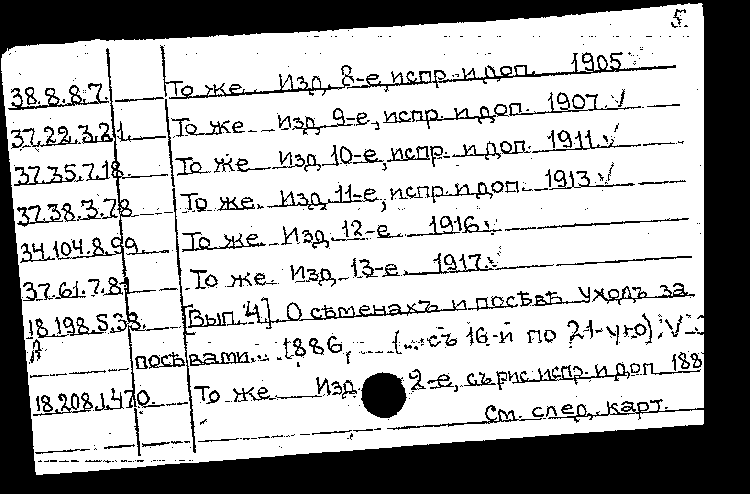 5.
38.8.8.7. То же. Изд. 8-е, испр. и доп. 1905 √
37.22.3.21. То же. Изд. 9-е, испр. и доп. 1907. √
37.35.7.18. То же Изд. 10-е, испр. и доп. 1911. √
37.38.3.78 То же. Изд. 11-е, испр. и доп. 1913 √
34.104.8.99. То же. Изд. 12-е 1916 √
37.61.7.81 То же. Изд. 13-е. 1917. √
18.198.5.38. [Вып. 4]. О сѣменахъ и посѣвѣ. Уходъ за
А посѣвами... 1886, (...съ 16-й по 21-ую). √
18.208.1.470. То же Изд. 2-е, съ рис. испр. и доп 188
См. след. карт.